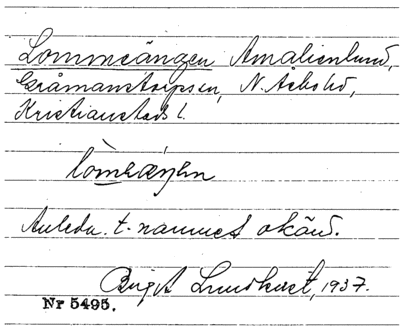 Lommeängen Amalienlund,
Gråmanstorps sn, N. Åsbo hd,
Kristianstads l.
Anledn. t. namnet okänd.
Birgit Lundkvist, 1937.
Nr 5495.